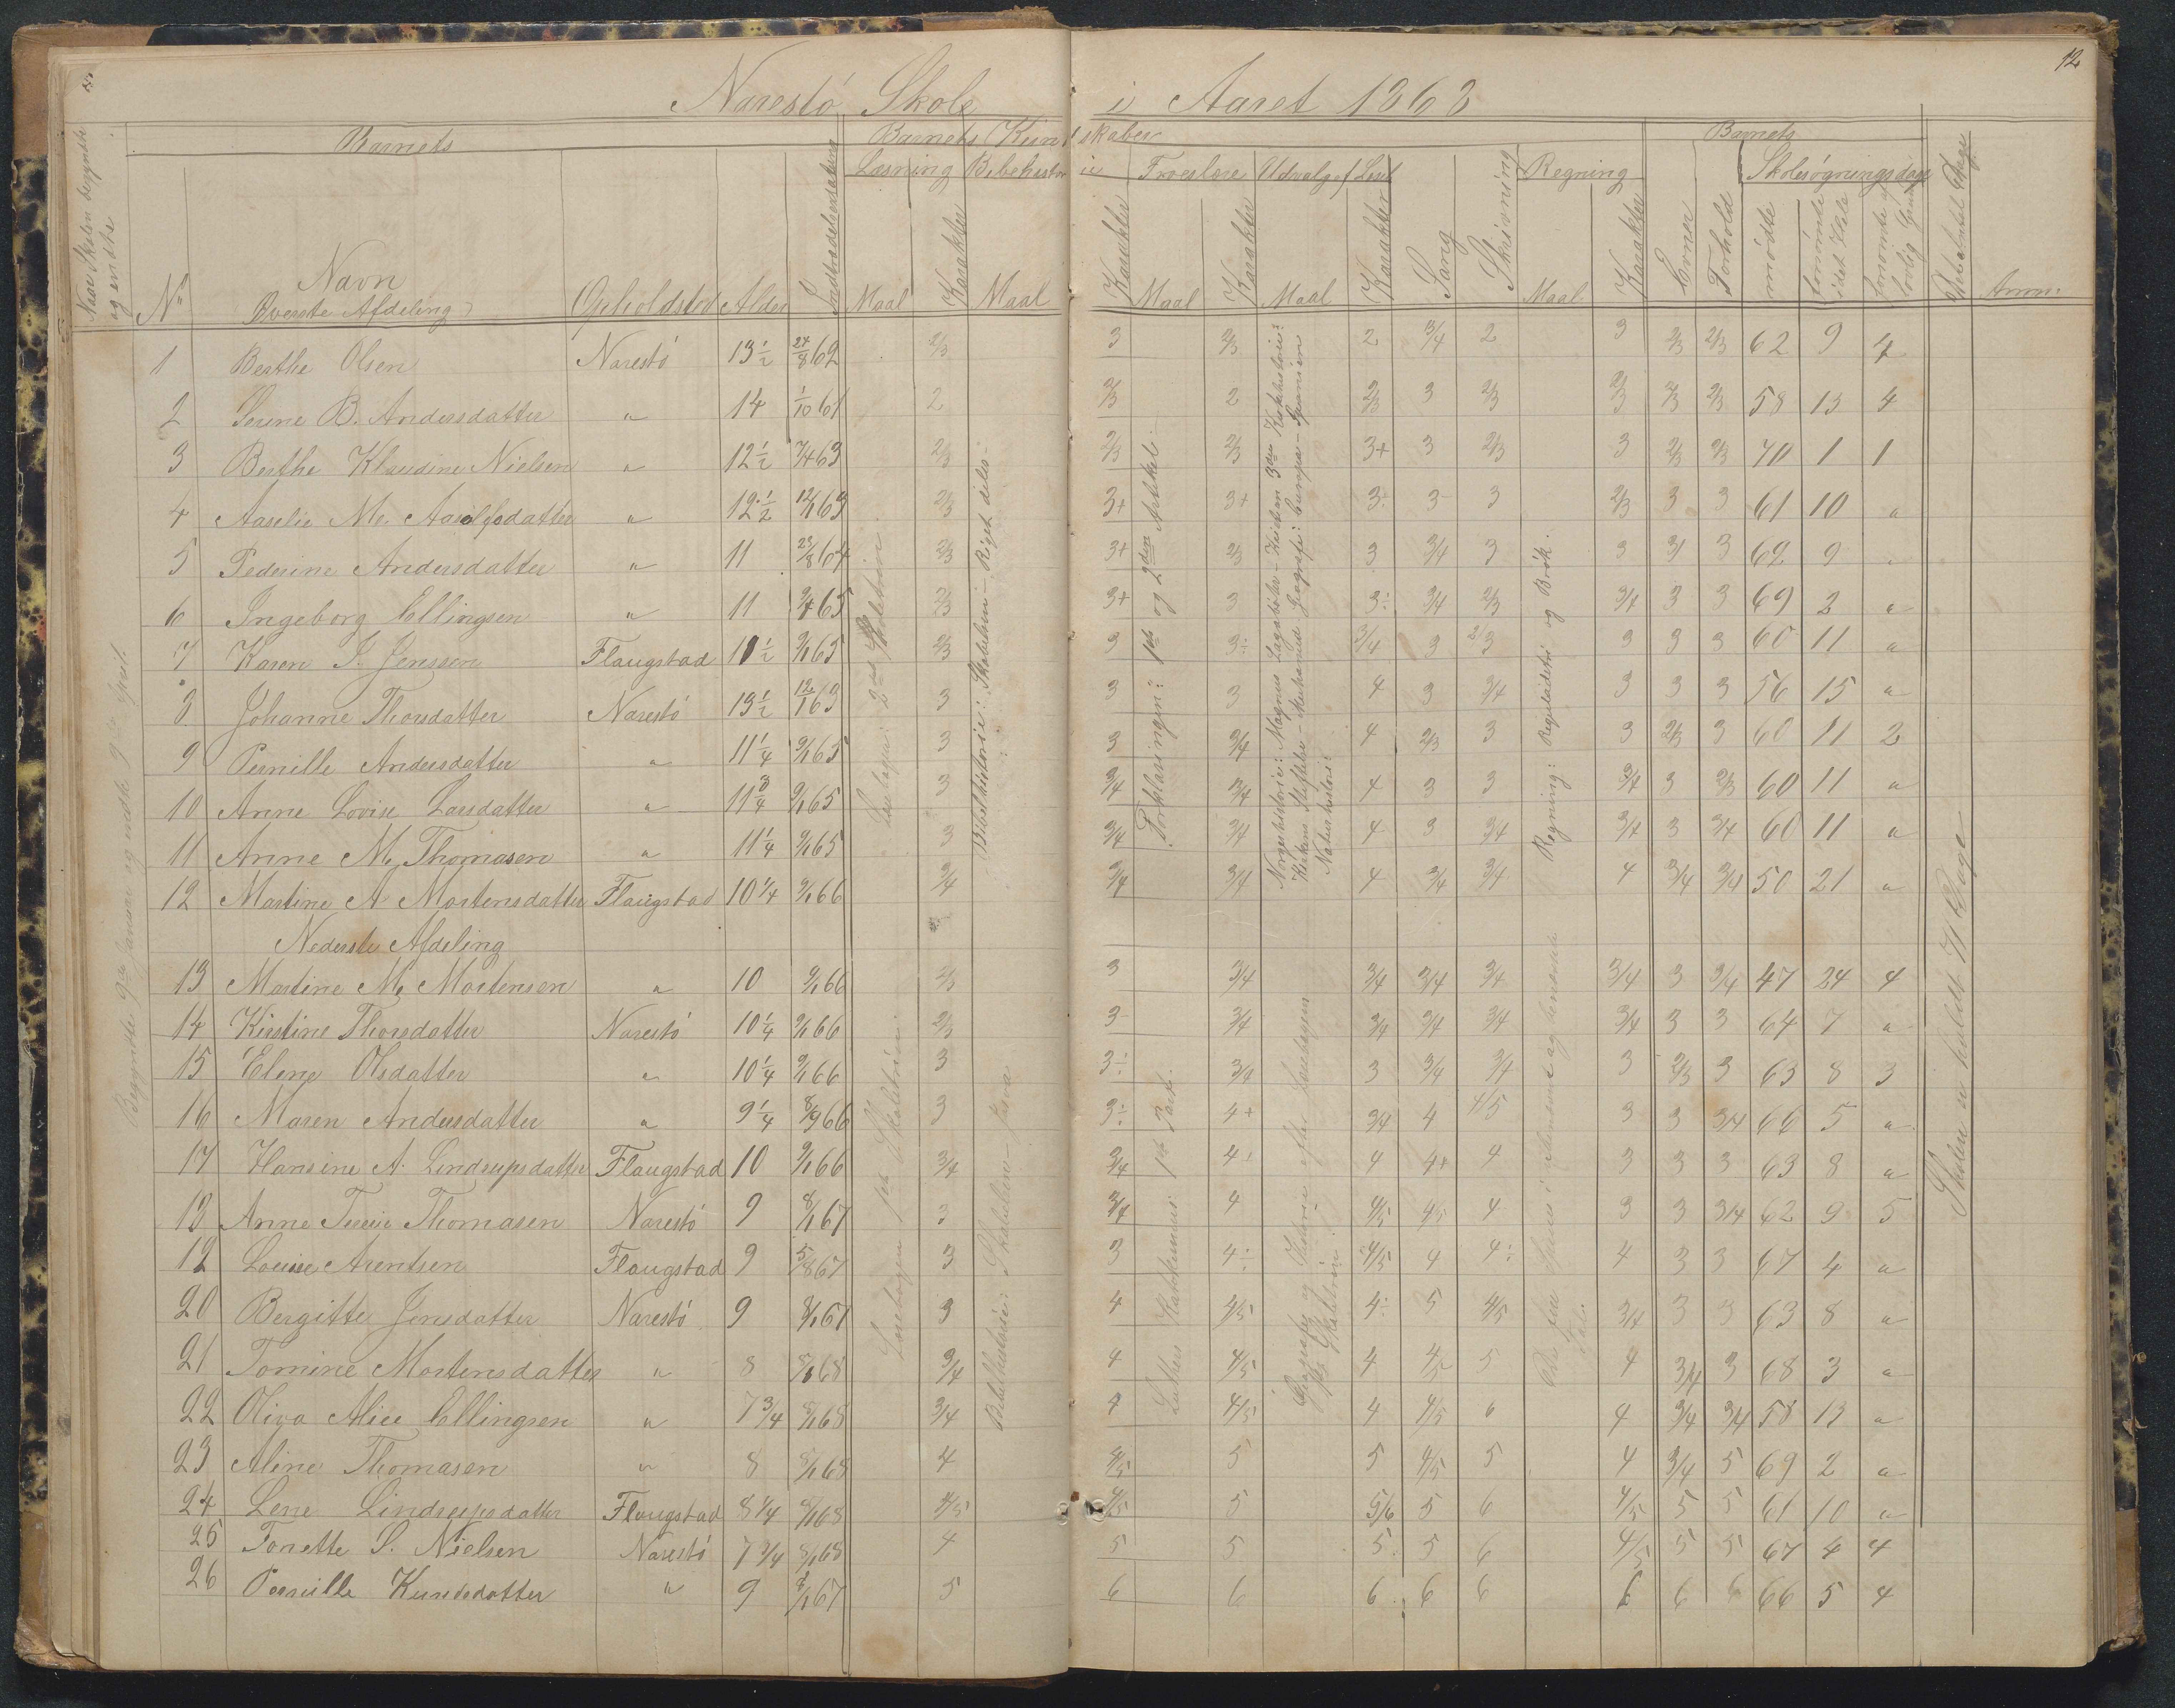 12
Narestö Skole i Aaret 1868
Naar Skolen begyndte og endte
Barnets
Barnets Kundskaber
Barnets
Læsning Bibehistorie Troeslære Udvalg af Læseb Regning Skolesøgningsdage
No Navn Opholdsted Alder Indtrædelsesdatum Maal Karakter Maal Karakter Maal Karakter Maal Karakter Sang Skrivning Maal Karakter Evner Forhold mödte forsömte idet Hele forsömte af lovlig Grund Anm:
Överste Afdeling
1 Berthe Olsen Narestö 13½ 24/8 62 2/3 3 2/3 2 3/4 2 3 2/3 2/3 62 9 4
2 Serine B. Andersdatter " 14 1/10 61 2 2/3 2 2/3 3 2/3 2/3 2/3 2/3 58 13 4
3 Berthe Klaudine Nielsen " 12½ 7/4 63 2/3 2/3 2/3 3+ 3 2/3 3 2/3 2/3 70 1 1
4 Aaselie M. Aasolfsdatter " 12½ 12/1 63 2/3 3+ 3+ 3÷ 3- 3 2/3 3 3 61 10 "
5 Pederine Andersdatter " 11 23/8 64 2/3 3+ 2/3 3 3/4 3 3 3 3 62 9 "
6 Ingeborg Ellingsen " 11 9/4 65 2/3 3+ 3 3÷ 3/4 2/3 3/4 3 3 69 2 "
7 Karen J. Jenssen Flaugstad 11½ 9/1 65 2/3 3 3÷ 3/4 3 2/3 3 3 3 60 11 "
8 Johanne Thorsdatter Narestö 13½ 12/1 63 3 3 3 4 3 3/4 3 3 3 56 15 "
9 Pernille Andersdatter " 11¼ 9/1 65 3 3 3/4 4 2/3 3 3 2/3 3 60 11 2
10 Anne Lovise Larsdatter " 11¾ 9/1 65 3 3/4 3/4 4 3 3 3/4 3 2/3 60 11 "
11 Anne M. Thomasen " 11¼ 9/1 65 3 3/4 3/4 4 3 3/4 3/4 3 3/4 60 11 "
12 Martine A Mortensdatter Flaugstad 10¼ 9/1 66 3/4 3/4 3/4 4 3/4 3/4 4 3/4 3/4 50 21 "
Nederste Afdeling
13 Martine M. Mortensen " 10 9/1 66 2/3 3 3/4 3/4 3/4 3/4 3/4 3 3/4 47 24 4
14 Kirstine Thorsdatter Narestö 10¼ 9/1 66 2/3 3- 3/4 3/4 3/4 3/4 3/4 3 3 64 7 "
15 Elene Olsdatter " 10¼ 9/1 66 3 3÷ 3/4 3 3/4 3/4 3 2/3 3 63 8 3
16 Maren Andersdatter " 9¼ 8/9 66 3 3÷ 4+ 3/4 4 4/5 3 3 3/4 66 5 "
17 Hansine A. Lindrupsdatter Flaugstad 10 9/1 66 3/4 3/4 4+ 4 4+ 4 3 3 3 63 8 "
18 Anne Terese Thomasen Narestö 9 8/1 67 3 3/4 4 4/5 4/5 4 3 3 3/4 62 9 5
19 Louise Arentsen Flaugstad 9 5/8 67 3 3 4÷ 4/5 4 4÷ 4 3 3 67 4 "
20 Bergitte Jensdatter Narestö 9 8/1 67 3 4 4/5 4÷ 5 4/5 3/4 3 3 63 8 "
21 Tomine Mortensdatter " 8 8/1 68 3/4 4 4/5 4 4/5 5 4 3/4 3 68 3 "
22 Oliva Alice Ellingsen " 7¾ 8/1 68 3/4 4 4/5 4 4/5 6 4 3/4 3/4 58 13 "
23 Aline Thomasen " 8 8/1 68 4 4/5 5 5 4/5 5 4 3/4 5 69 2 "
24 Lene Lindrupsdatter Flaugstad 8¼ 8/1 68 4/5 4/5 5 5/6 5 6 4/5 5 5 61 10 "
25 Tonette S. Nielsen Narestö 7¾ 8/1 68 4 5 5 5 5 6 4/5 5 5 67 4 4
26 Pernille Knudsdatter " 9 8/1 67 5 6 6 6 6 6 6 6 6 66 5 4
Begyndte 9de Januar og endte
Læsebogen: 2det Skoletrin.
Bibelhistorie: Skabelsen - Riget deles -
Forklaringen: 1ste og 2den Artikel.
Norgeshistorie: Magnus Lagaböter - Kristian 3die Kirkehistorie:
Kirkens Stiftelse - Muhamed Geografi: Europa - Spanien
Naturhistorie:
Regning: Regeladetri og Brök.
Læsebogen 1ste Skoletrin.
Bibelhistorie: Skabelsen -
Luthers Katekismus: 1ste Part.
Geografi og Historie efter Læsebogen
1ste Skoletrin.
De fire Species i ubenævnte og benævnte Tal.
Skolen er holdt 71 Dage